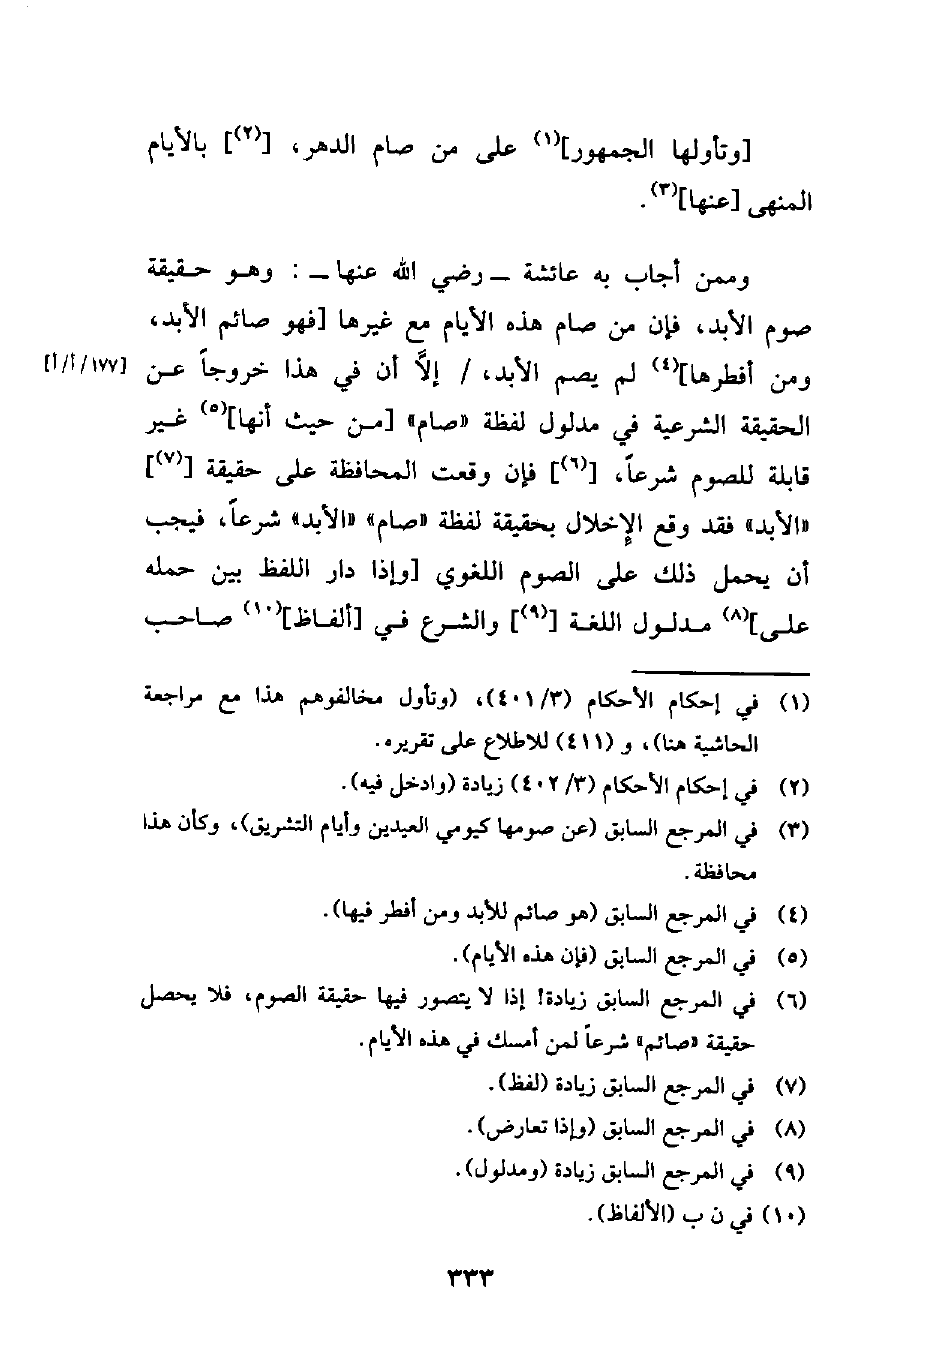 [وتأولها الجمهور](١) على من صام الدهر، [(٢)] بالأيام
المنهى [عنها](٣).
وممن أجاب به عائشة ــ رضي الله عنها ــ : وهو حقيقة
صوم الأبد، فإن من صام هذه الأيام مع غيرها [فهو صائم الأبد،
ومن أفطرها](٤) لم يصم الأبد، / إلاَّ أن في هذا خروجاً عن [١٧٧/أ/أ]
الحقيقة الشرعية في مدلول لفظة «صام» [من حيث أنها](٥) غير
قابلة للصوم شرعاً، [(٦)] فإن وقعت المحافظة على حقيقة [(٧)]
«الأبد» فقد وقع الإخلال بحقيقة لفظة «صام» «الأبد» شرعاً، فيجب
أن يحمل ذلك على الصوم اللغوي [وإذا دار اللفظ بين حمله
على](٨) مدلول اللغة [(٩)] والشرع في [ألفاظ](١٠) صاحب
(١) في إحكام الأحكام (٤٠١/٣)، (وتأول مخالفوهم هذا مع مراجعة
الحاشية هنا)، و (٤١١) للاطلاع على تقريره.
(٢) في إحكام الأحكام (٤٠٢/٣) زيادة (وادخل فيه).
(٣) في المرجع السابق (عن صومها كيومي العيدين وأيام التشريق)، وكأن هذا
محافظة.
(٤) في المرجع السابق (هو صائم للأبد ومن أفطر فيها).
(٥) في المرجع السابق (فإن هذه الأيام).
(٦) في المرجع السابق زيادة! إذا لا يتصور فيها حقيقة الصوم، فلا يحصل
حقيقة «صائم» شرعاً لمن أمسك في هذه الأيام.
(٧) في المرجع السابق زيادة (لفظ).
(٨) في المرجع السابق (وإذا تعارض).
(٩) في المرجع السابق زيادة (ومدلول).
(١٠) في ن ب (الألفاظ).
٣٣٣